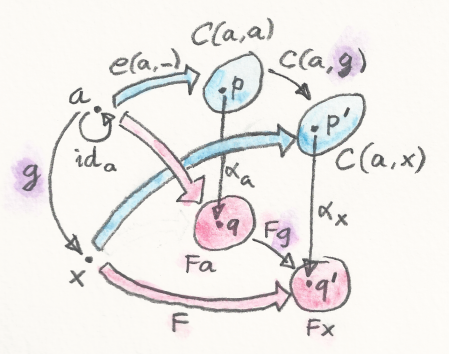 C(a,a)
e(a,-)
C(a,g)
a
p
p'
id a
C(a,x)
g
αa
αx
q
Fg
Fa
x
q'
F
Fx